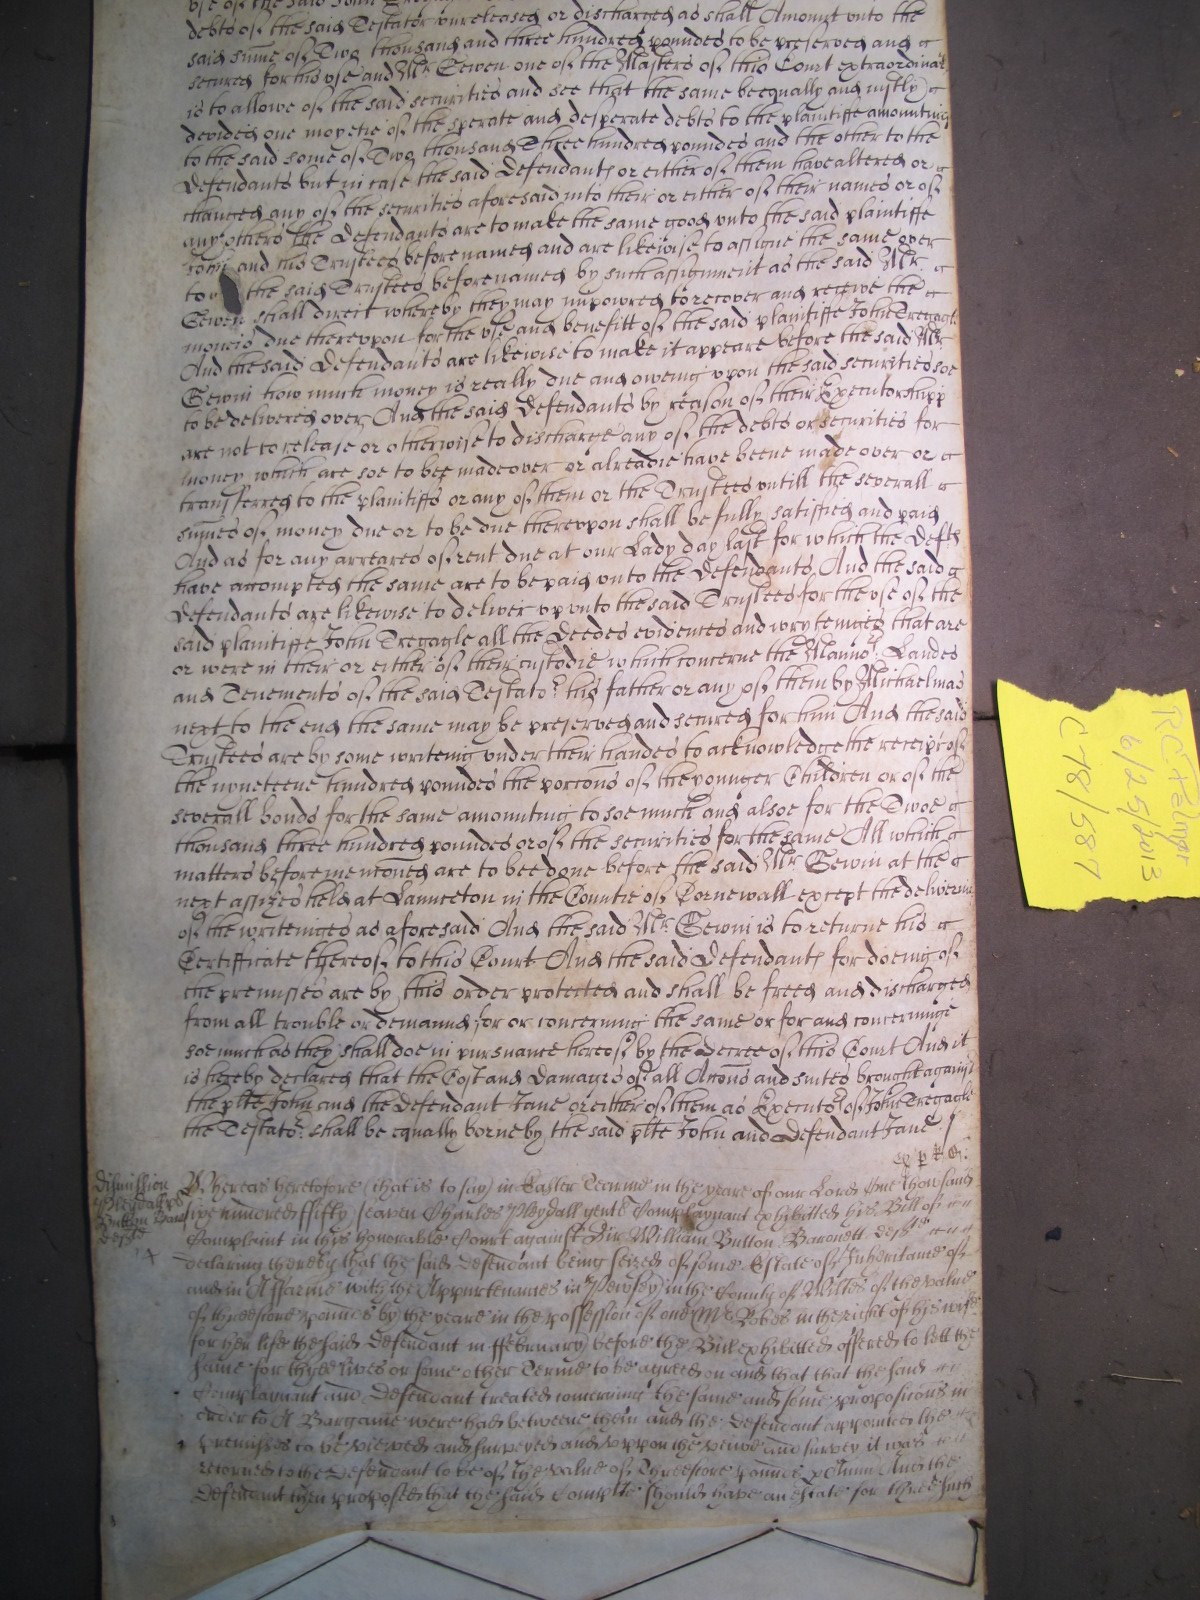 use of the said John
debts of the said Testator unreleased or discharged as shall Amount unto the
said sume of Two thousand and three hundred poundes to be preserved and
secured for his use and Mr Gewen one of the Masters of this Court extraordinary
is to allowe of the said securities and see that the same bee equally and justly
devided one moyetie of the sperate and desperate debts to the plaintiffe amounting
to the said some of Two thousand Three hundred poundes and the other to the
Defendants but in case the said Defendants or either of them have altered or
changed any of the securities aforesaid into their or either of their names or of
any others the Defendants are to make the same good unto the said plaintiffe
John and his Trustees before named and are likewise to assigne the same over
to the said Trustees before named by such assignment as the said Mr
Gewen shall direct whereby they may impowred to recover and receive the
moneis due thereupon for the use and benefitt of the said plaintiffe John Tregagle
And the said Defendants are likewise to make it appeare before the said Mr
Gewin how much money is really due and oweing upon the said securities soe
to be delivered over And the said Defendants by reason of their Executorshipp
are not to release or otherwise to discharge any of the debts or securities for
money which are soe to bee made over or alreadie have beene made over or
transferred to the plaintiffs or any of them or the Trustees untill the severall
sumes of money due or to be due thereupon shall be fully satisfied and paid
And as for any arreares of rent due at our Lady day last for which the Defts
have accompted the same are to be paid unto the Defendants And the said
Defendants are likewise to deliver up unto the said Trustees for the use of the
said plaintiffe John Tregagle all the Deedes evidences and wryteinges that are
or were in their or either of their custodie which concerne the Mannors Landes
and Tenements of the said Testator his father or any of them by Michaelmas
next to the end the same may be preserved and secured for him And the said
Trustees are by some writeing under their handes to acknowledge the receipt of
the nyneteene hundred poundes the porcons of the younger Children or of the
severall bonds for the same amounting to soe much and alsoe for the Twoe
thousand three hundred poundes or of the securities for the same All which
matters before mencioned are to bee done before the said Mr Gewin at the
next assizes held at Launceton in the Countie of Cornewall except the delivering
of the writeinges as aforesaid And the said Mr Gewin is to returne his
Certifficate thereof to this Court And the said Defendants for doeing of
the premisses are by this order protected and shall be freed and discharged
from all trouble or demannd for or concerning the same or for and concerninge
soe much as they shall doe in pursuance hereof by the Decree of this Court And it
is hereby declared that the Cost and Damages of all Accons and suites brought against
the plte John and the Defendant Jane or either of them as Executors of John Tregagle
the Testator shall be equally borne by the said plte John and Defendant Jane
Dismission
Pleydall
Button Baro
Defte
Whereas heretofore (that is to say) in Easter Tearme in the yeare of our Lord One thowsand
six hundred fifty seaven Charles Pleydall gent Complaynant exhibitted his Bill of
Complaint in this honorable Court against Sir William Button Baronett Deft
declaring thereby that the said Defendant being seized of some Estate of Inheritance of
and in A ffarme with the Appurtenances in Pewsey in the County of Wiltes of the value
of threescore pounds by the yeare in the possession of one Mr in the right of his wife
for her life the said Defendant in ffebruary before the Bill exhibitted offered to lett the
same for three lives or some other Terme to be agreed on and that that the said
Complaynant and Defendant treated concerning the same and some propositions in
order to A Bargaine were had betweene them and the Defendant appointed the
premisses to be viewed and surveyed and uppon the veiwe and survey it was
retorned to the Defendant to be of the value of Threescore pounds p Ann And the
Defendant then proposed that the said Complte should have an estate for three such
RC Palmer
6/25/2013
C78/587